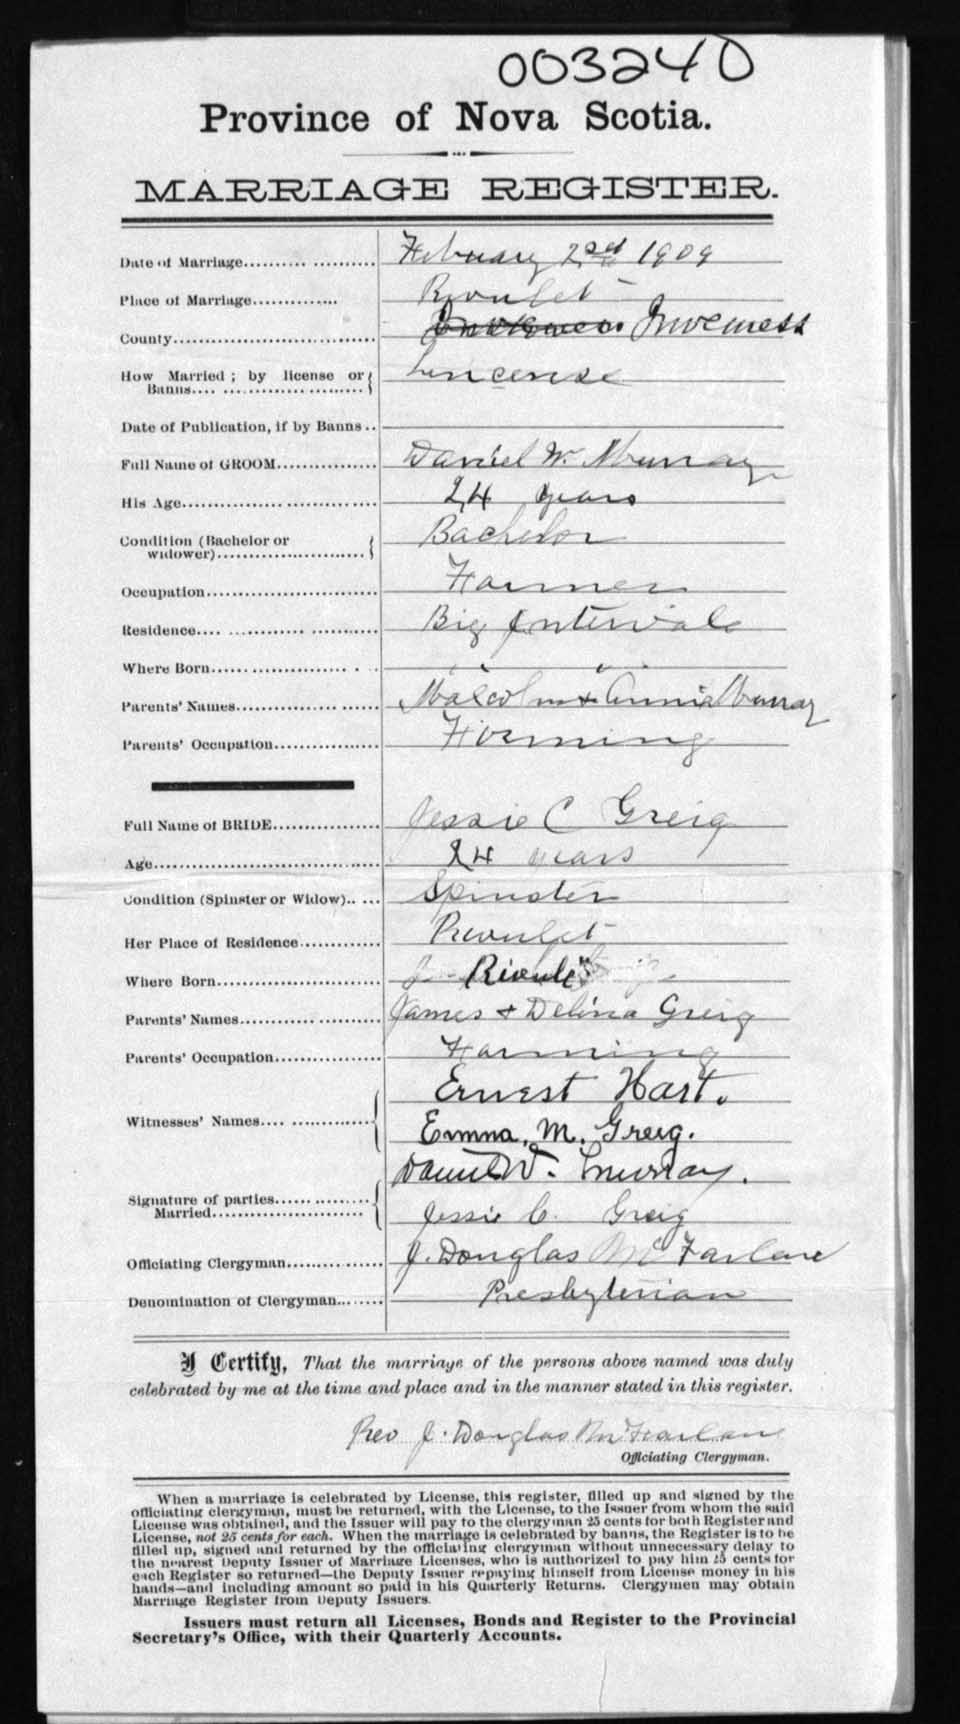 003240
Province of Nova Scotia.
MARRIAGE REGISTER.
Date of Marriage February 2nd 1909
Place of Marriage Rivulet
County Inverness
How Married; by license or Banns Lincense
Date of Publication, if by Banns
Full Name of GROOM Daniel W. Murray
His Age 24 years
Condition (Bachelor or widower) Bachelor
Occupation Farmer
Residence Big Intervale
Where Born " "
Parents' Names Malcolm & Annie Murray
Parents' Occupation Farming
Full Name of BRIDE Jessie C Greig
Age 24 years
Condition (Spinster or Widow) Spinster
Her Place of Residence Rivulet
Where Born Rivulet
Parents' Names James & Delina Greig
Parents' Occupation Farming
Witnesses' Names Ernest Hart.
Emma. M. Greig.
Signature of parties Married Daniel W. Murray.
Jessie C. Greig
Officiating Clergyman J. Douglas McFarlane
Denomination of Clergyman Presbyterian
I Certify, That the marriage of the persons above named was duly
celebrated by me at the time and place and in the manner stated in this register.
Rev J. Douglas McFarlane
Officiating Clergyman.
When a marriage is celebrated by License, this register, filled up and signed by the
officiating clergyman, must be returned, with the License, to the Issuer from whom the said
License was obtained, and the Issuer will pay to the clergyman 25 cents for both Register and
License, not 25 cents for each. When the marriage is celebrated by banns, the Register is to be
filled up, signed and returned by the officiating clergyman without unnecessary delay to
the nearest Deputy Issuer of Marriage Licenses, who is authorized to pay him 25 cents for
each Register so returned—the Deputy Issuer repaying himself from License money in his
hands—and including amount so paid in his Quarterly Returns. Clergymen may obtain
Marriage Register from Deputy Issuers.
Issuers must return all Licenses, Bonds and Register to the Provincial
Secretary's Office, with their Quarterly Accounts.